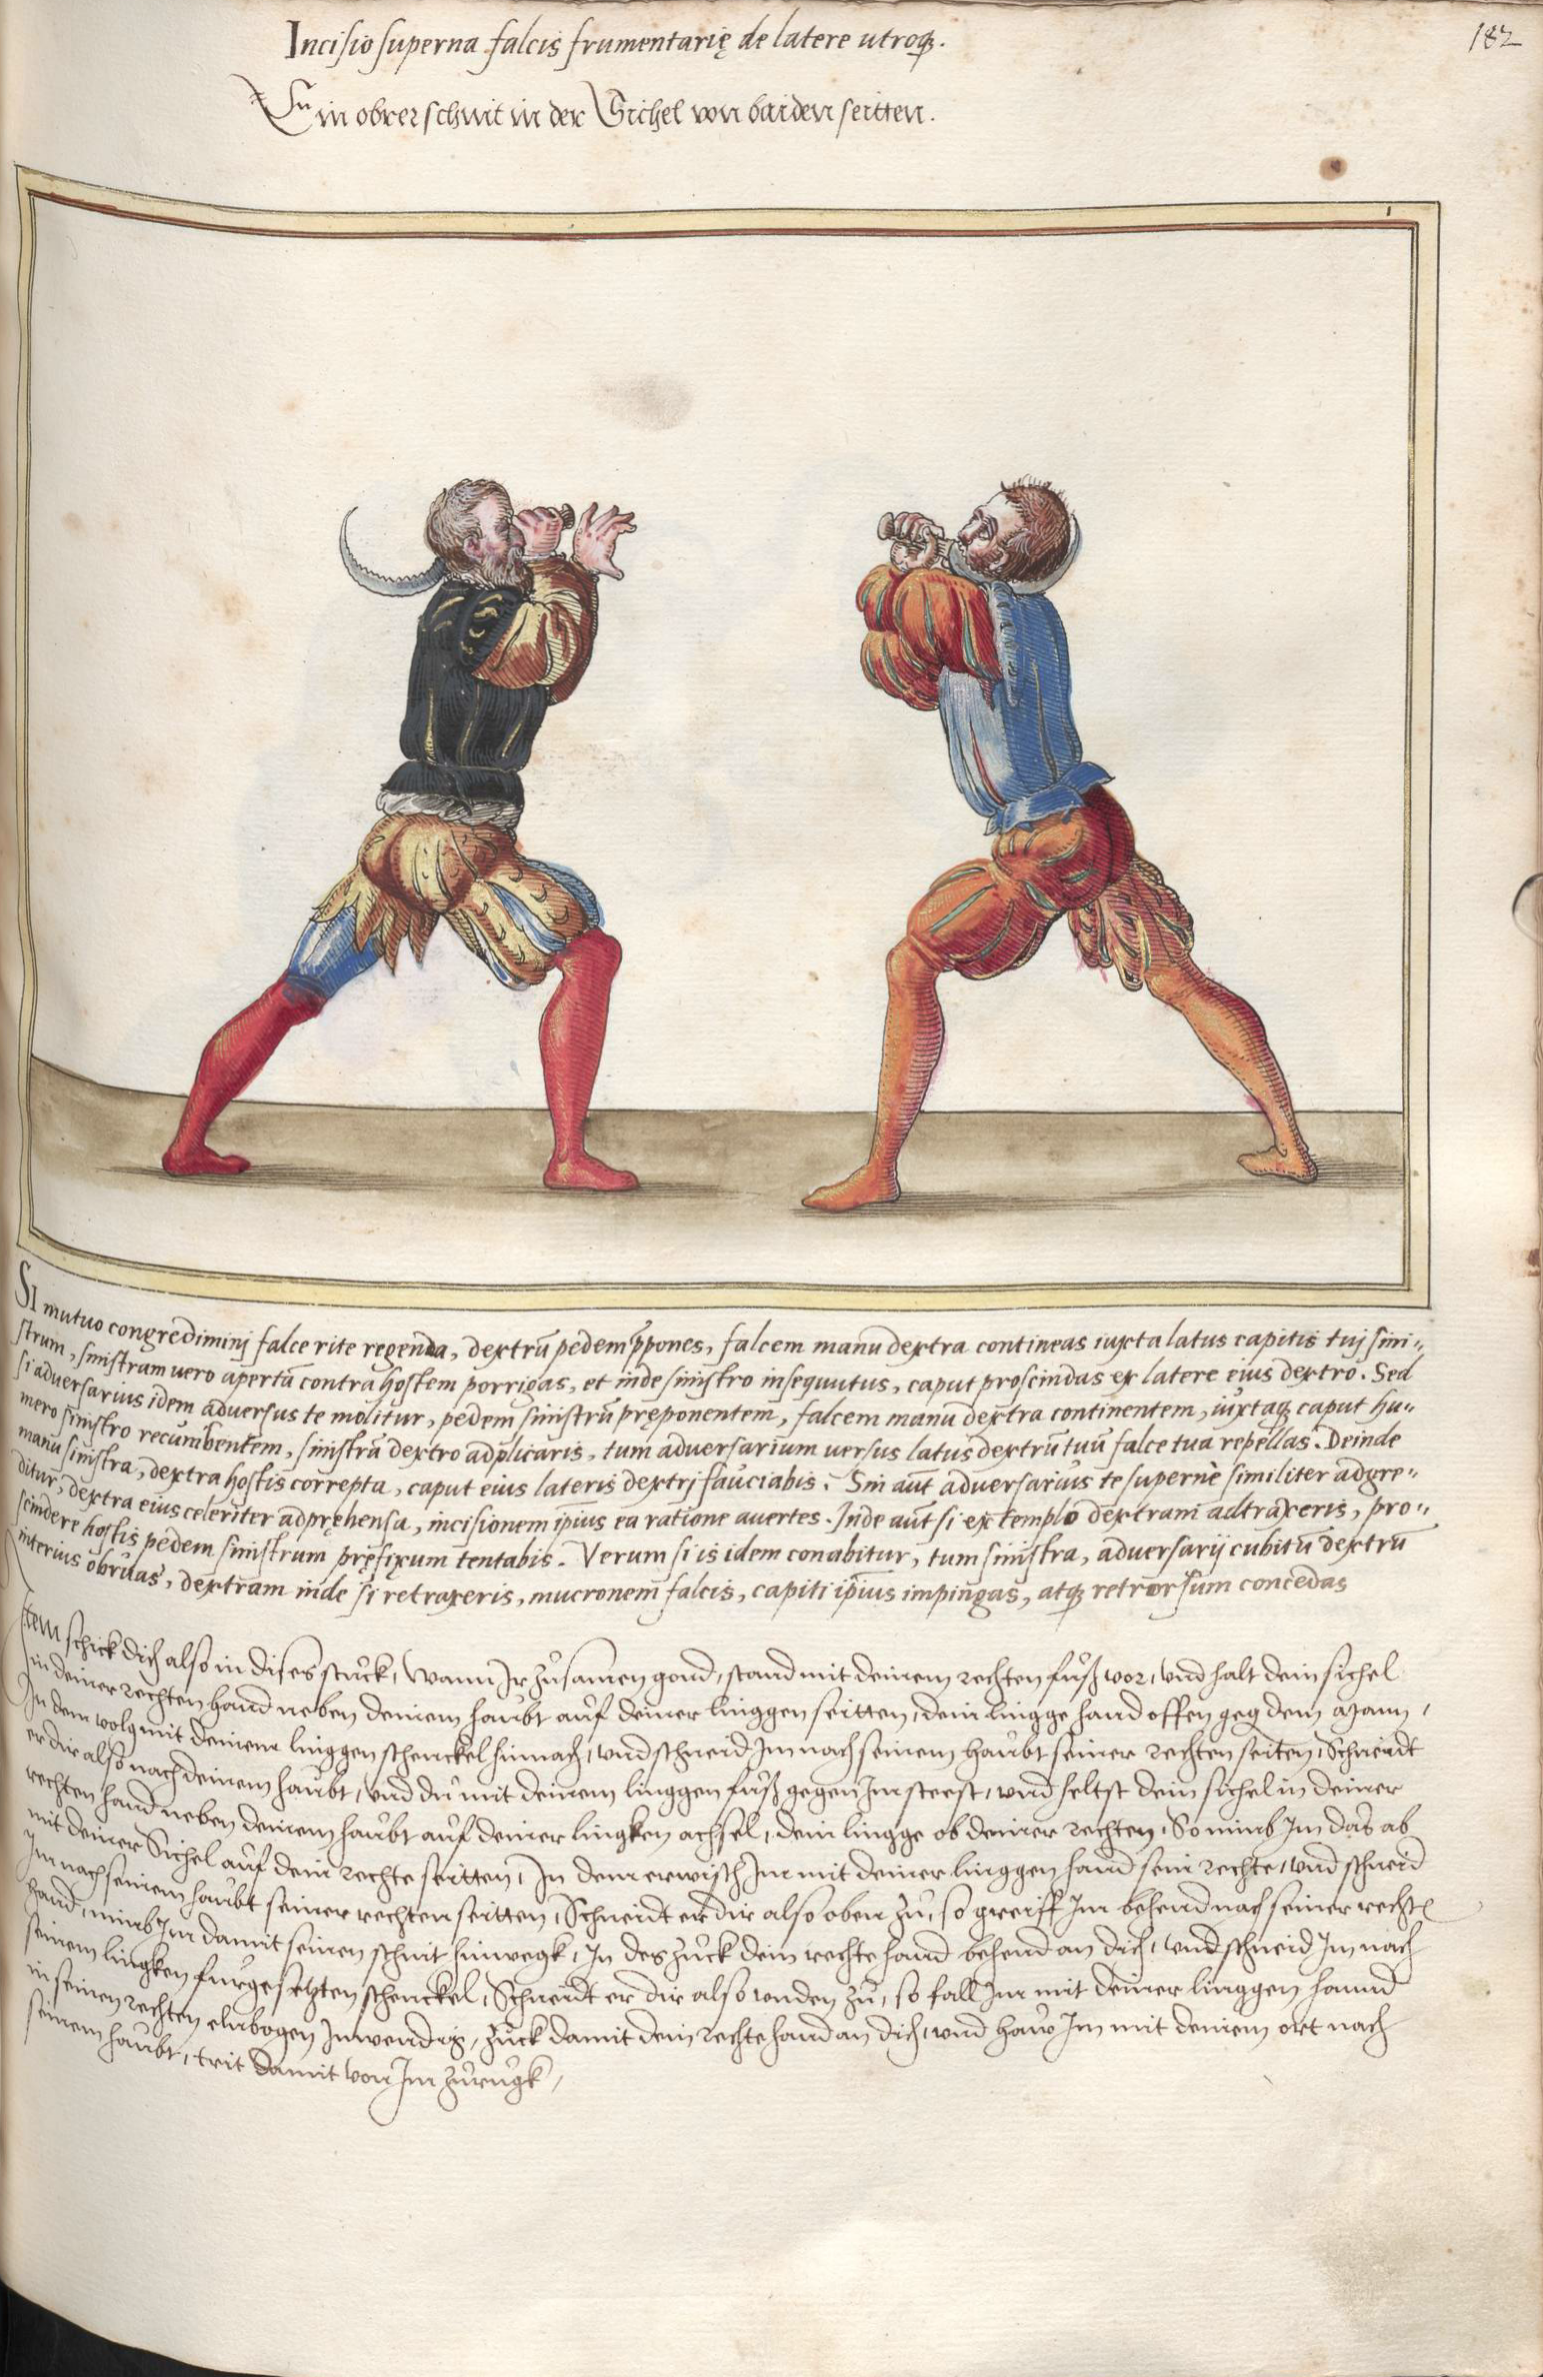 Incisio superna falcis frumentarię de latere utroq.
182
Ein obrer schnit in der Sichel von baiden seitten.
SI mutuo congredimini falce rite regenda, dextrū pedem p̄pones, falcem manu dextra contineas iuxta latus capitis tui sini¬
strum, sinistram uero apertā contra hostem porrigas, et inde sinistro insequutus, caput proscindas ex latere eius dextro. Sed
si adversarius idem adversus te molitur, pedem sinistrū pręponentem, falcem manu dextra continentem, iuxtaq caput hu¬
mero sinistro recumbentem, sinistrā dextro adplicaris, tum adversarium versus latus dextrū tuū falce tua repellas. Deinde
manu sinistra, dextra hostis correpta, caput eius lateris dextri sauciabis. Sin aūt adversarius te supernè similiter adgre¬
ditur, dextra eius celeriter adpręhensa, incisionem ip̄ius ea ratione avertes. Inde aūt si extemplo dextram adtraxeris, pro¬
scindere hostis pedem sinistrum pręfixum tentabis. Verum si is idem conabitur, tum sinistra, adversarij cubitū dextrū
interius obruas, dextram inde si retraxeris, mucronem falcis, capiti ip̄ius impingas, atq retrorsum concedas
Item schick dich also in dises stuck, Wann Ir zusamen gond, stand mit deinem rechten fuß vor, und halt dein sichel
in deiner rechten hand neben deinem haubt auf deiner linggen seitten, dein lingge hand offen geg dem mann,
In dem volg mit deinem linggen schenckel hinnach, und schneid Im nach seinem haubt seiner rechten seiten, Schneidt
er dir also nach deinem haubt, und du mit deinem linggen fuß gegen Im steest, und heltst dein sichel in deiner
rechten hand neben deinem haubt auf deiner lingken achsel, dein lingge ob deiner rechten, So nimb Im das ab
mit deiner Sichel auf dein rechte seitten, In dem erwisch Im mit deiner linggen hand sein rechte, und schneid
Im nach seinem haubt seiner rechten seitten, Schneidt er dir also oben zu, so greiff Im behend nach seiner rechtē
hand, nimb Im damit seinen schnit hinwegk, In des zuck dein rechte hand behend an dich, und schneid Im nach
seinem lingken furgesetzten schenckel, Schneidt er dir also unden zu, so fall Im mit deiner linggen hannd
in seinen rechten elnbogen Inwendig, zuck damit dein rechte hand an dich, und haw Im mit deinem ort nach
seinem haubt, trit damit von Im zurugk,